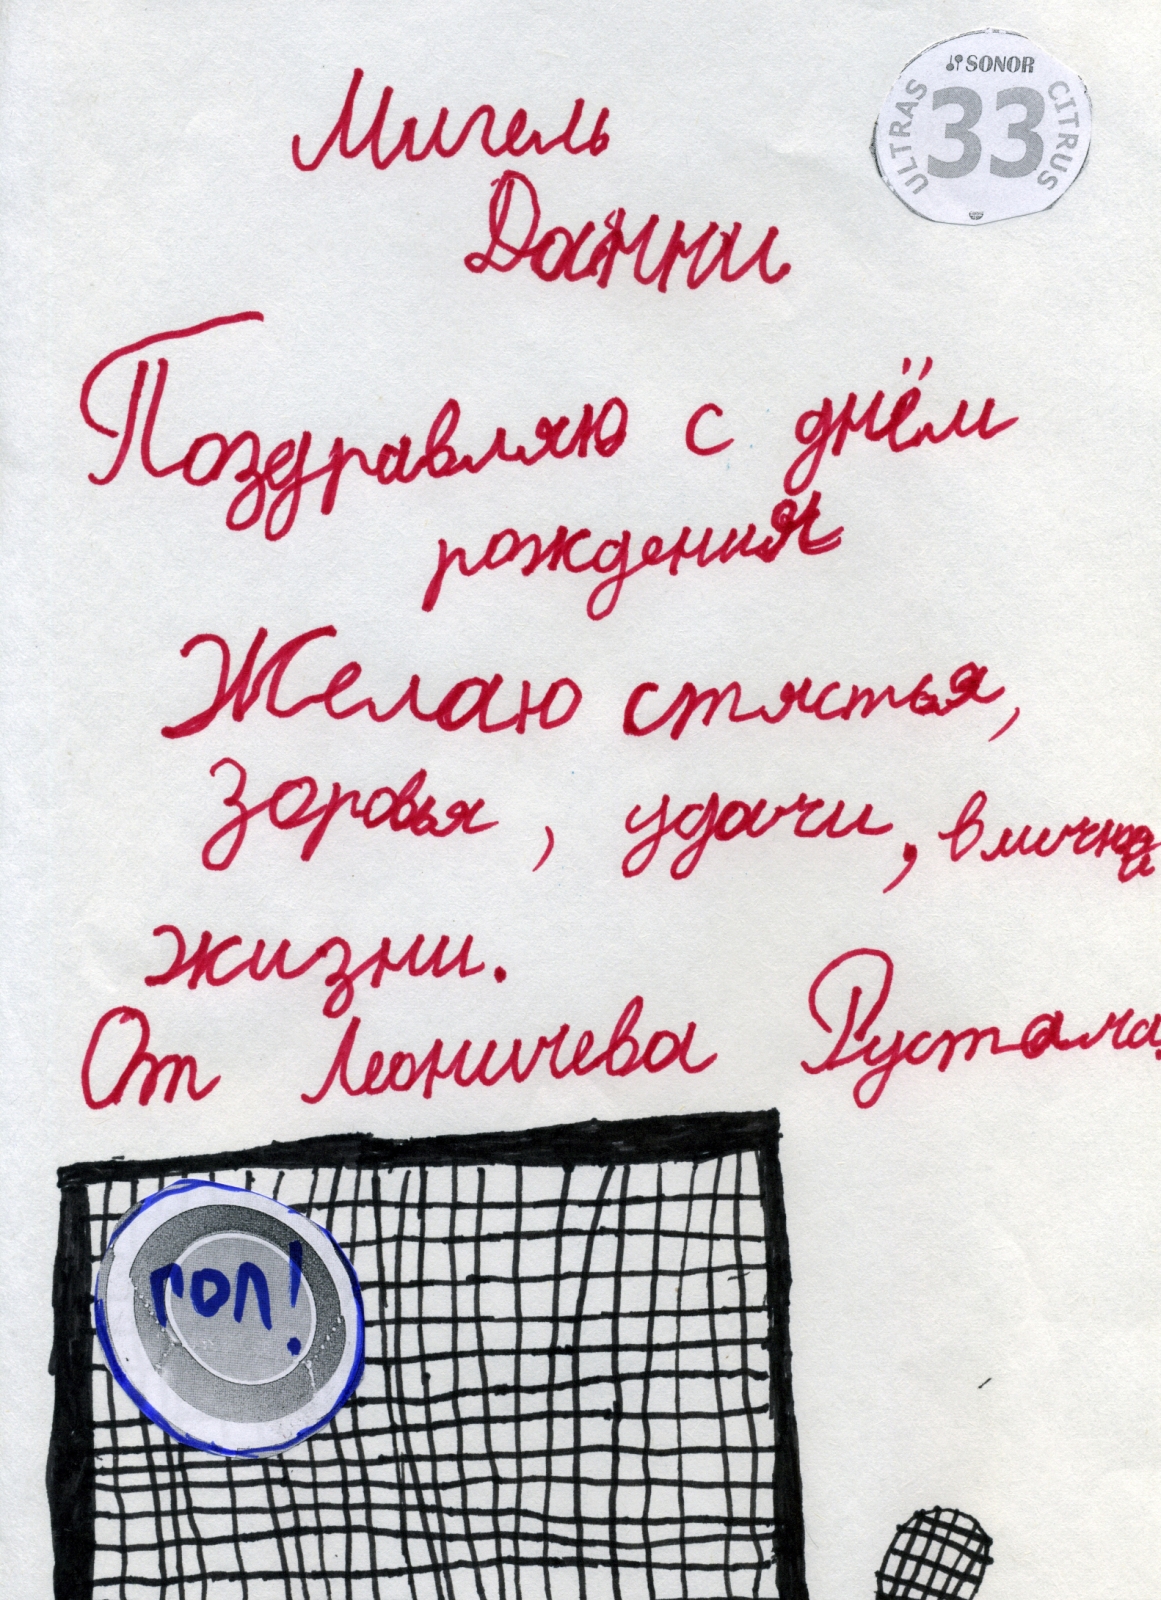 SONOR
ULTRAS
33
CITRUS
Мигель
Данни
Поздравляю с днём
рождения
Желаю стястья,
Зоровья, удачи, в лично
жизни.
От Леоничева Рустама.
гол!